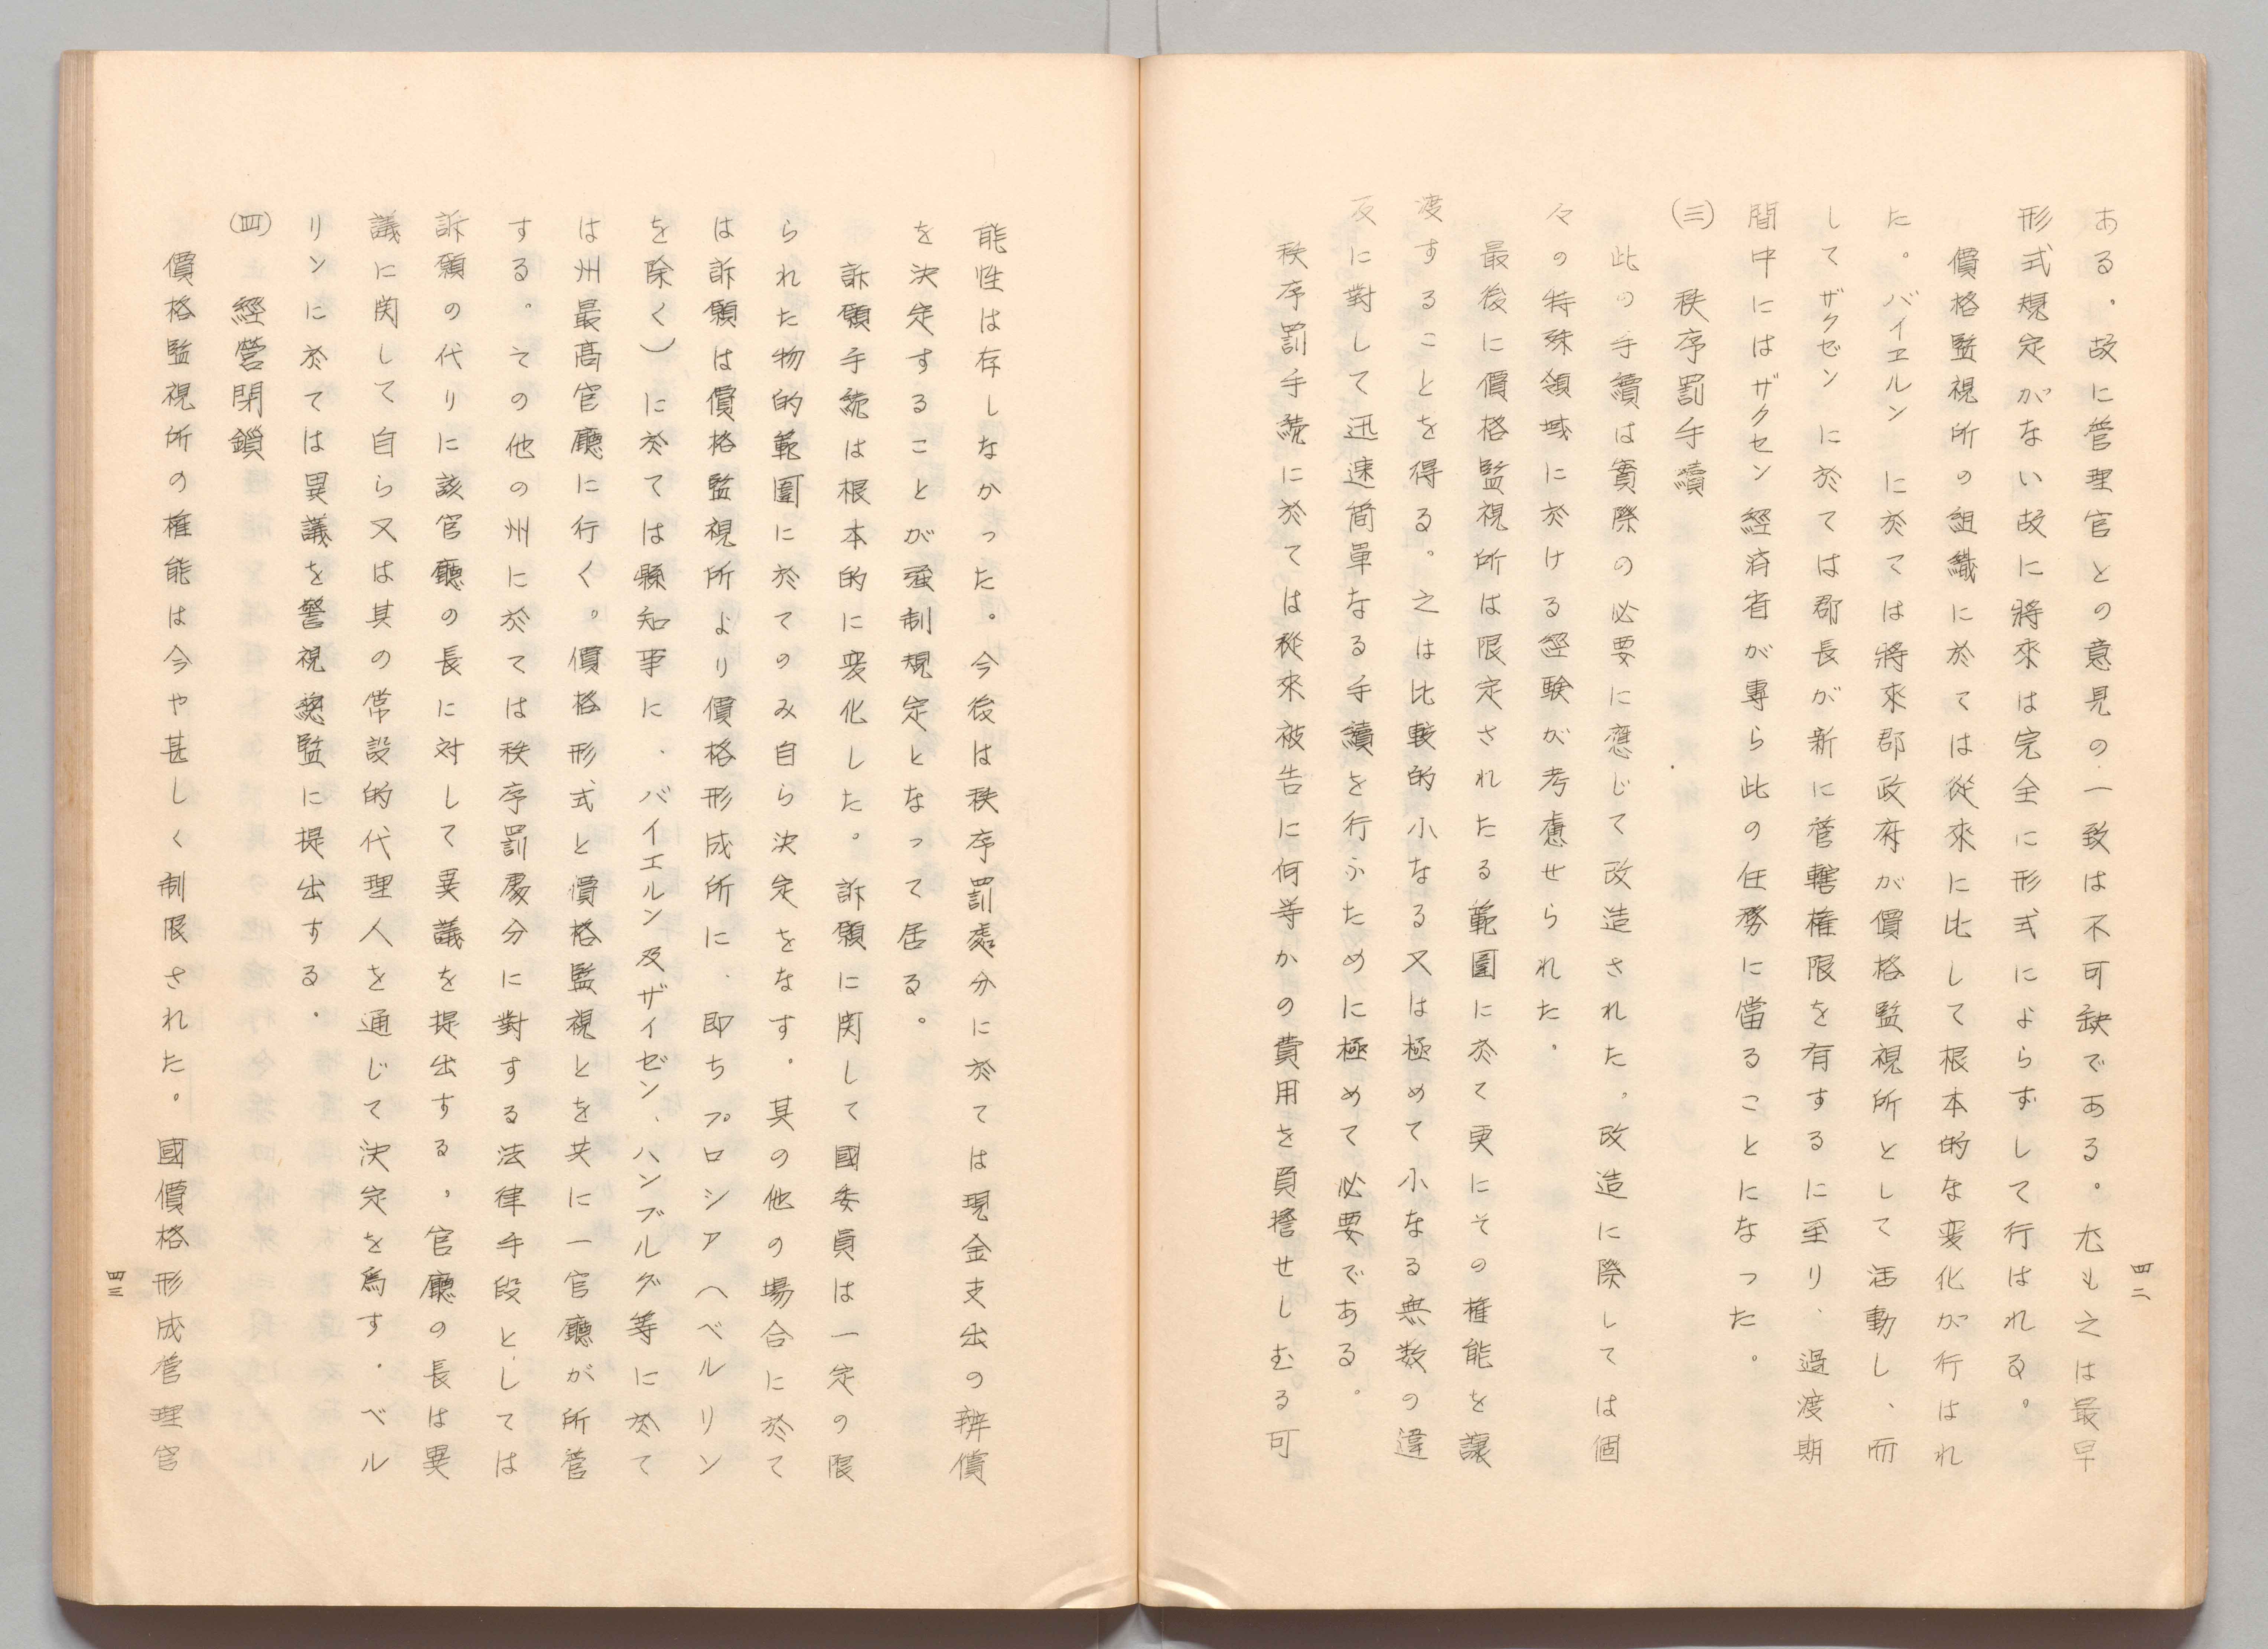 ある。故に管理官との意見の一致は不可缺である。尤も之は最早
形式規定がない故に將來は完全に形式によらずして行はれる。
價格監視所の組織に於ては從來に比して根本的な変化が行はれ
た。バイエルンに於ては將來郡政府が價格監視所として活動し、而
してザクゼンに於ては郡長が新に管轄権限を有するに至り、過渡期
間中にはザクセン經済省が專ら此の任務に當ることになった。
(三) 秩序罰手續
此の手續は實際の必要に應じて改造された。改造に際しては個
々の特殊領域に於ける經験が考慮せられた。
最後に價格監視所は限定されたる範圍に於て更にその権能を讓
渡することを得る。之は比較的小なる又は極めて小なる無数の違
反に對して迅速簡單なる手續を行ふために極めて必要である。
秩序罰手続に於ては從來被告に何等かの費用を負擔せしむる可
四二
能性は存しなかった。今後は秩序罰處分に於ては現金支出の辨償
を決定することが強制規定となって居る。
訴願手続は根本的に変化した。訴願に関して國委員は一定の限
られた物的範圍に於てのみ自ら決定をなす。其の他の場合に於て
は訴願は價格監視所より價格形成所に、即ちプロシア（ベルリン
を除く）に於ては縣知事に、バイエルン及ザイゼン、ハンブルグ等に於て
は州最高官廳に行く。價格形式と價格監視とを共に一官廳が所管
する。その他の州に於ては秩序罰處分に對する法律手段としては
訴願の代りに該官廳の長に対して異議を提出する，官廳の長は異
議に関して自ら又は其の常設的代理人を通じて決定を爲す。ベル
リンに於ては異議を警視總監に提出する。
(四) 經営閉鎖
價格監視所の権能は今や甚しく制限された。國價格形成管理官
四三